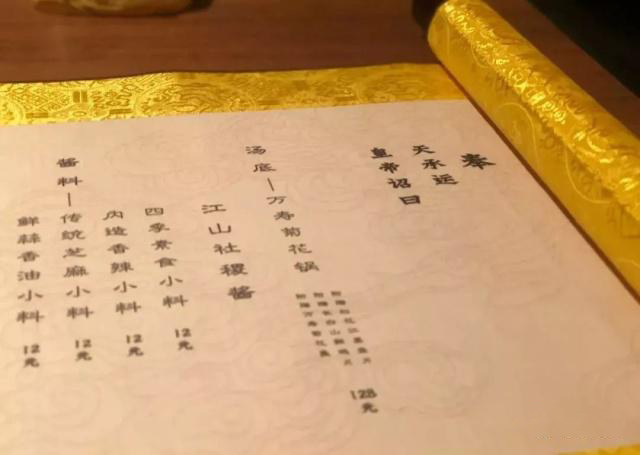 奉
天承运
皇帝诏曰
汤底—万寿菊花锅
128元
江山社稷酱
四季素食小料 12元
内造香辣小料 12元
酱料—传统芝麻小料 12元
鲜蒜香油小料 12元